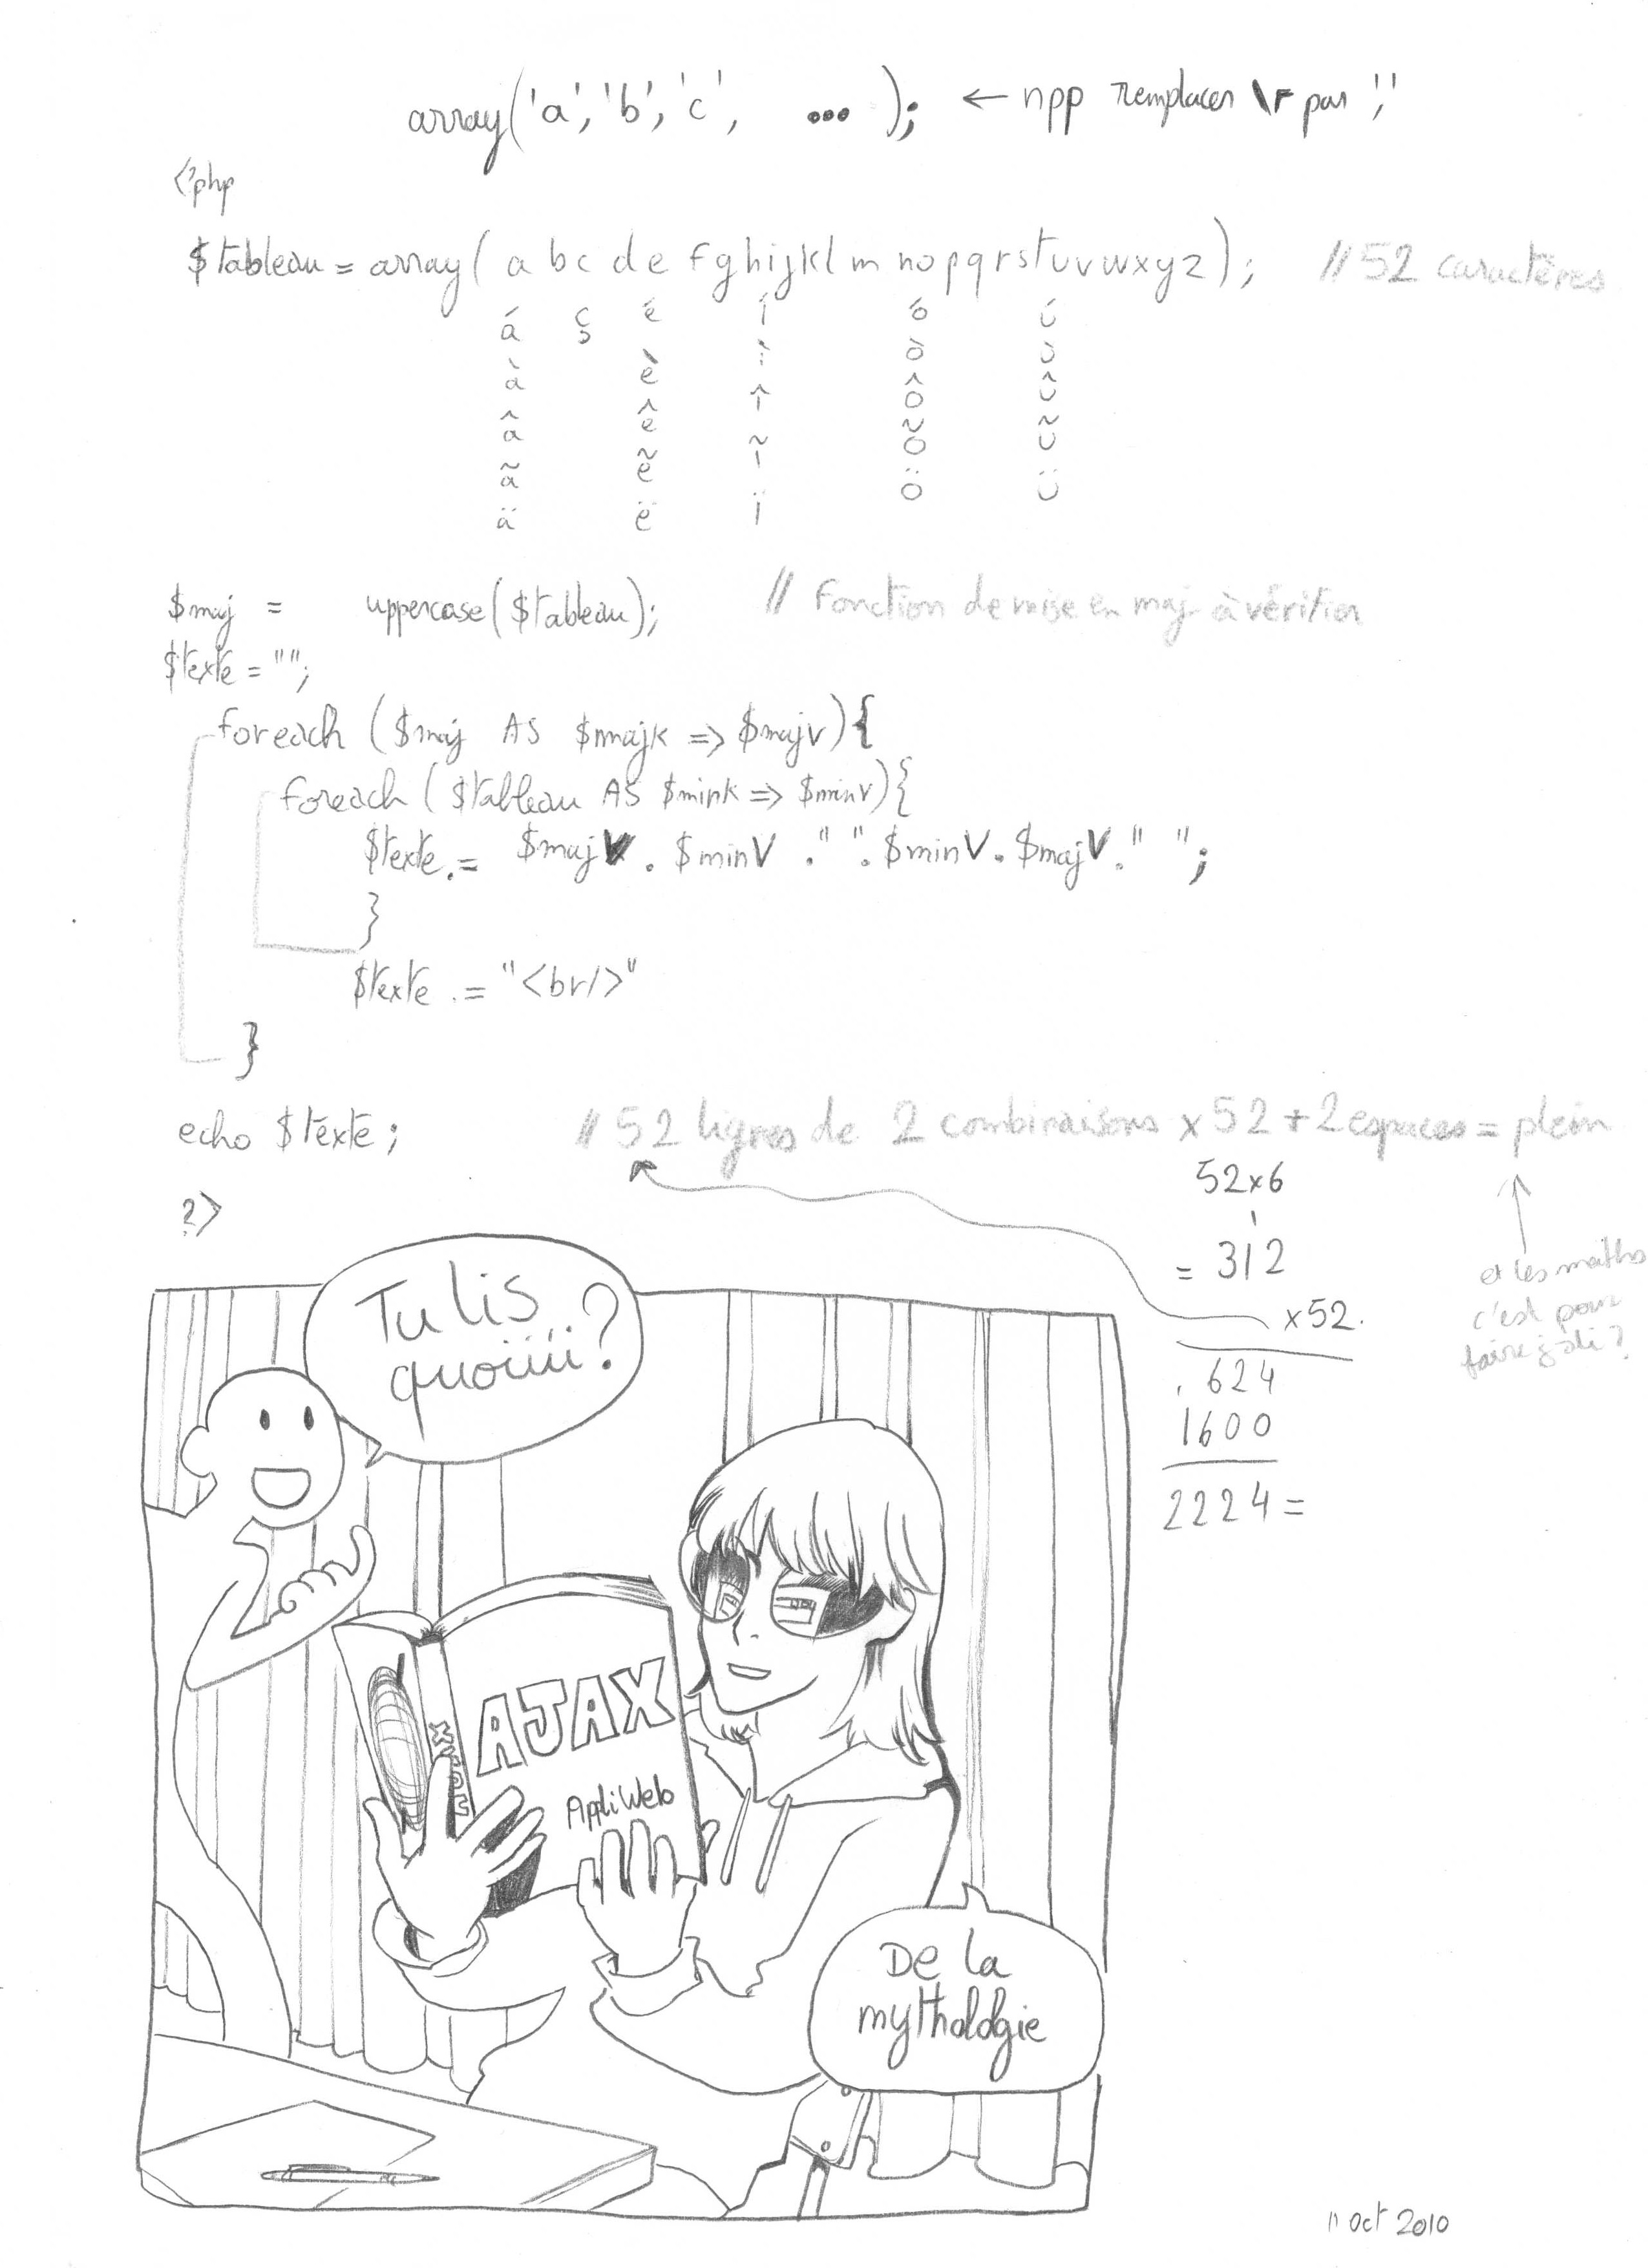 array('a','b','c', ... ); ← npp remplacer \r par ','
<?php
$tableau = array( a b c d e f g h i j k l m n o p q r s t u v w x y z ); // 52 caractères
á ç é í ó ú
à è ì ò ù
â ê î ô û
ã ẽ ĩ õ ũ
ä ë ï ö ü
$maj = uppercase($tableau); // Fonction de mise en maj à vérifier
$texte = "";
foreach ($maj AS $majk => $majv){
foreach ($tableau AS $mink => $minv){
$texte .= $majV . $minV ." ". $minV. $majV." ";
}
$texte .= "<br/>"
}
echo $texte; // 52 lignes de 2 combinaisons x 52 + 2 espaces = plein
?>
52x6
= 312
x52.
.624
1600
2224=
et les maths
c'est pour
faire joli?
Tu lis
quoiiii?
AJAX
AppliWeb
De la
mythologie
11 oct 2010